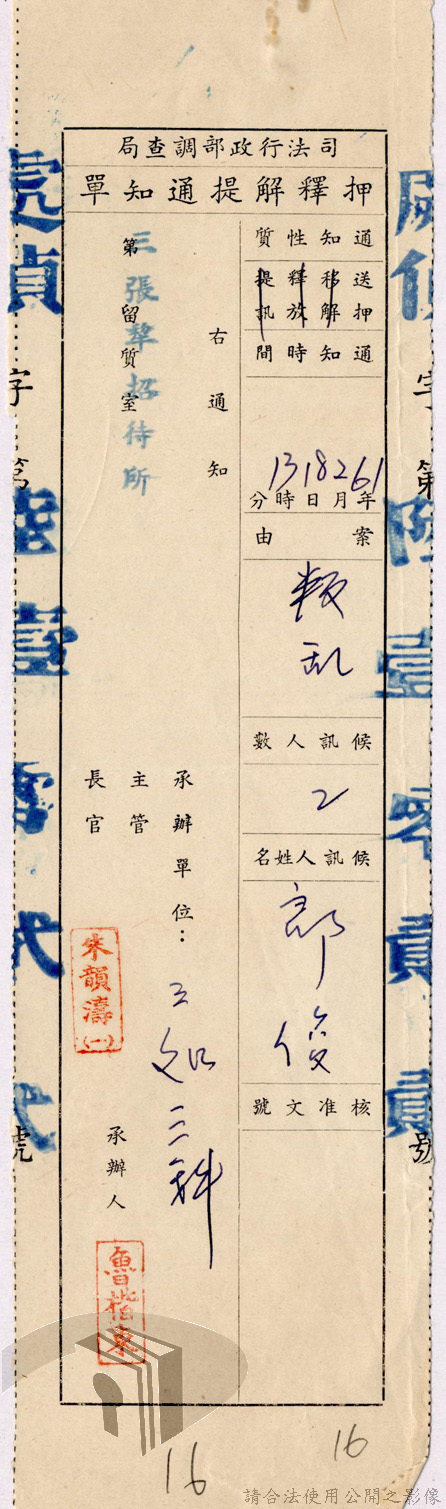 司法行政部調查局
押釋解提通知單
通知性質
送押 移解 釋放 提訊
通知時間
61年2月8日1時13分
案由
叛乱
候訊人數
2
候訊人姓名
郭俊
核准文號
右通知
第 留質室
三張犁招待所
承辦單位：
三処三科
主管
長官
朱韻濤(一)
承辦人
魯楷東
處偵字第陸壹零貳貳號
16
16
請合法使用公開之影像